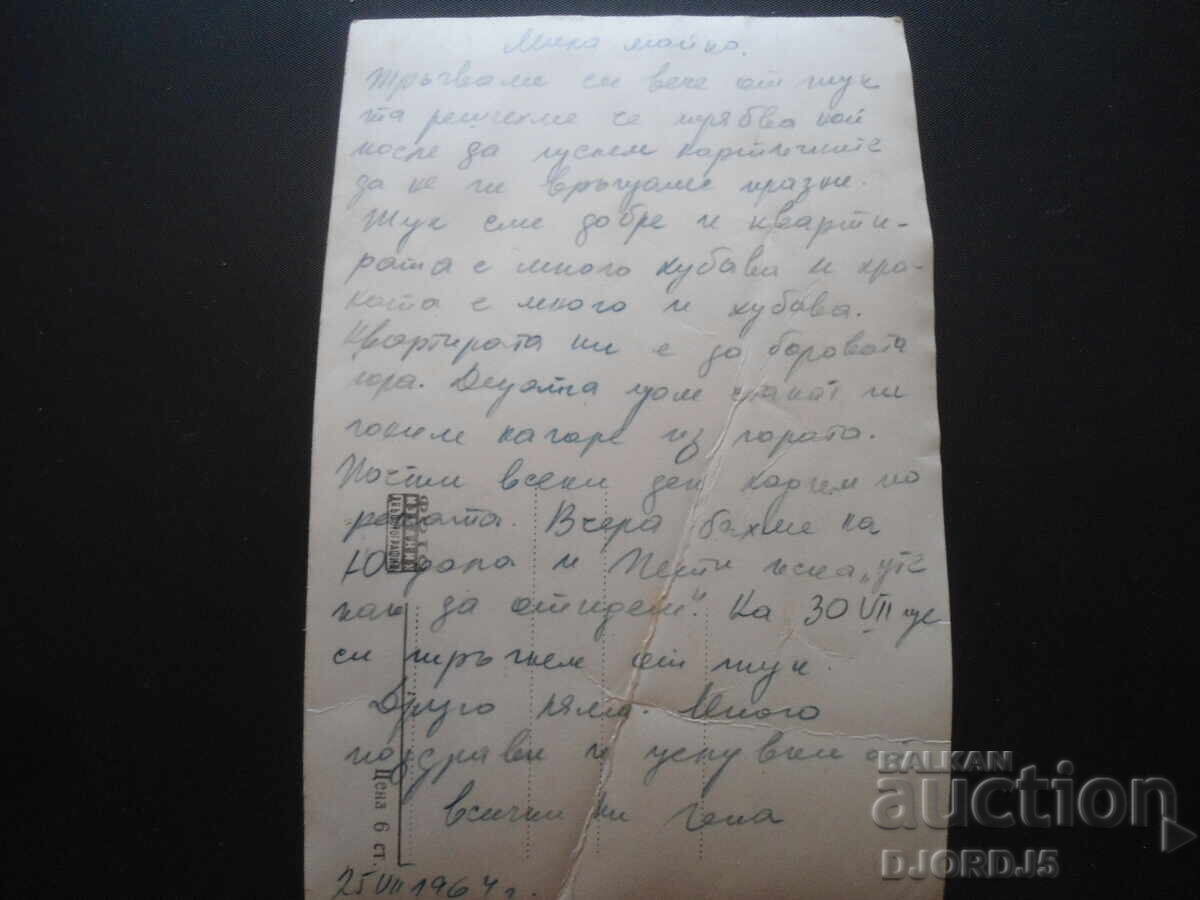 Мила майко.
Тръгваме си вече от тук
та решихме че трябва най
после да пуснем картичките
да не ги връщаме празни.
Тук сме добре и кварти-
рата е много хубава и хра-
ната е много и хубава.
Квартирата ни е до боровата
гора. Децата щом станат ги
гоним нагоре из гората.
Почти всеки ден ходим по
Вчера бяхме на
и Пепи иска „уте
пак да отидем". На 30 VII ще
си тръгнем от тук.
Друго няма. Много
поздрави и целувки от
всички ни Гена
25 VII 1964 г.
Цена 6 ст.
BALKAN
auction
DJORDJ5